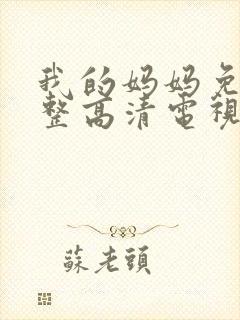 我的妈妈免
整高清電視
蘇老頭